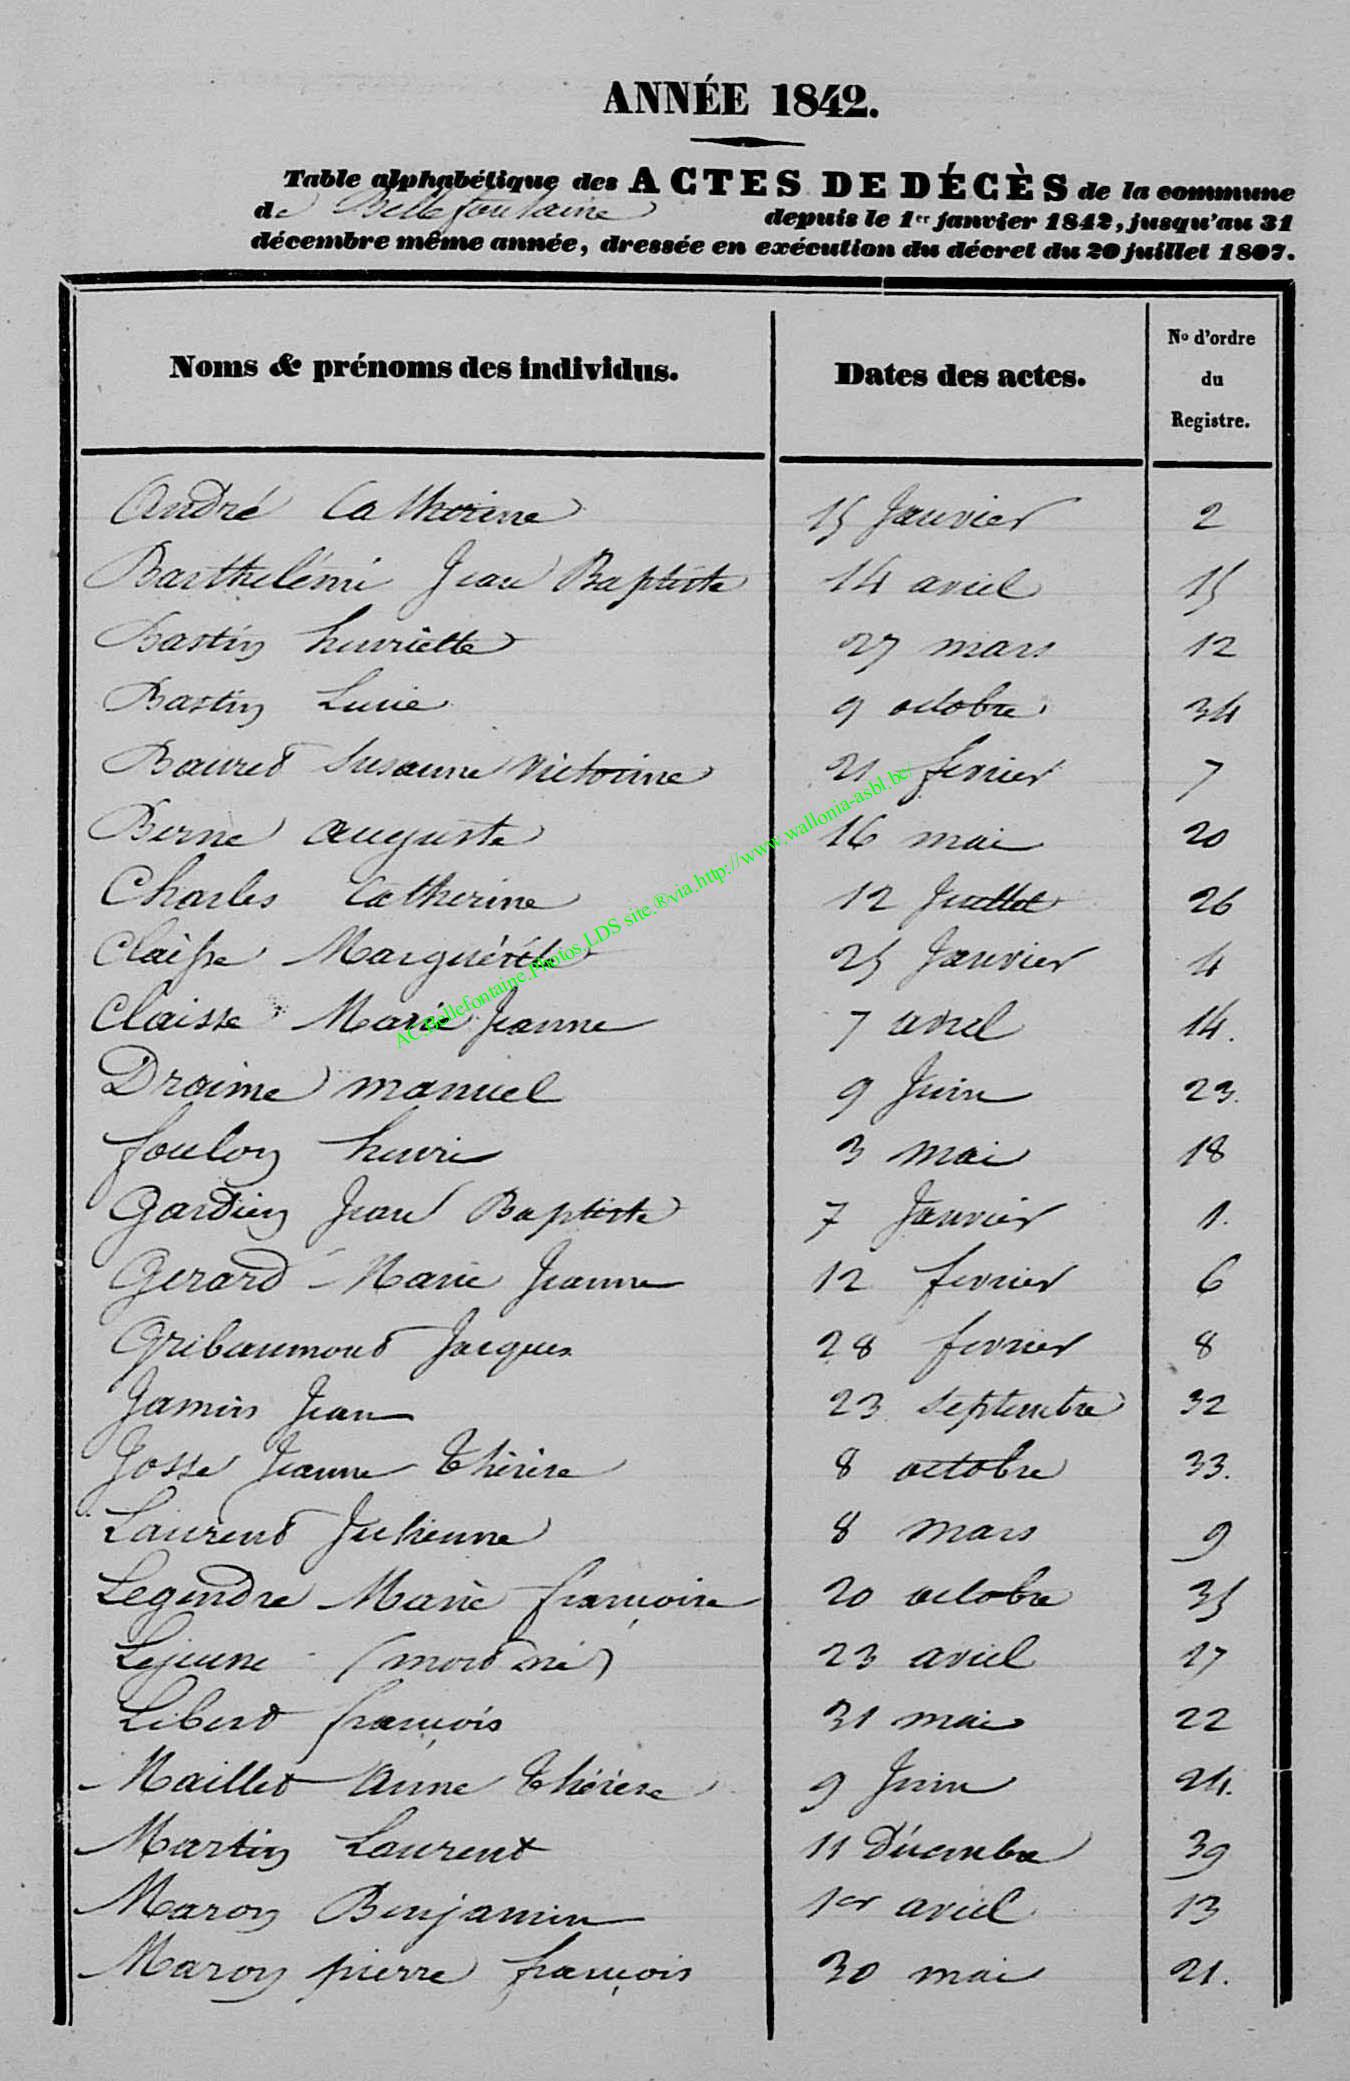 ANNÉE 1842.
Table alphabétique des ACTES DE DÉCÈS de la commune
de Bellefontaine depuis le 1er janvier 1842, jusqu'au 31
décembre même année, dressée en exécution du décret du 20 juillet 1807.
Noms & prénoms des individus. Dates des actes. No d'ordre du Registre.
André Catherine 15 Janvier 2
Barthelémi Jean Baptiste 14 avril 15
Bastin henriette 27 mars 12
Bastin Lucie 9 octobre 34
Bauret Susanne Victorine 21 fevrier 7
Berne auguste 16 mai 20
Charles Catherine 12 Juillet 26
Claisse Marguérite 25 Janvier 4
Claisse Marie Jeanne 7 avril 14.
Draime manuel 9 Juin 23.
foulon henri 3 mai 18
Gardien Jean Baptiste 7 Janvier 1.
Gerard Marie Jeanne 12 fevrier 6
Gribaumont Jacques 28 fevrier 8
Jamin Jean 23 septembre 32
Josse Jeanne Thérèse 8 octobre 33.
Laurent Julienne 8 mars 9
Legendre Marie françoise 20 octobre 35
Lejeune (mort né) 23 avril 17
Libert françois 31 mai 22
Maillet Anne Thérèse 9 Juin 24.
Martin Laurent 11 Décembre 39
Maron Benjamin 1er avril 13
Maron pierre françois 30 mai 21.
AC.Bellefontaine.Photos.LDS site.®via.http://www.wallonia-asbl.be/